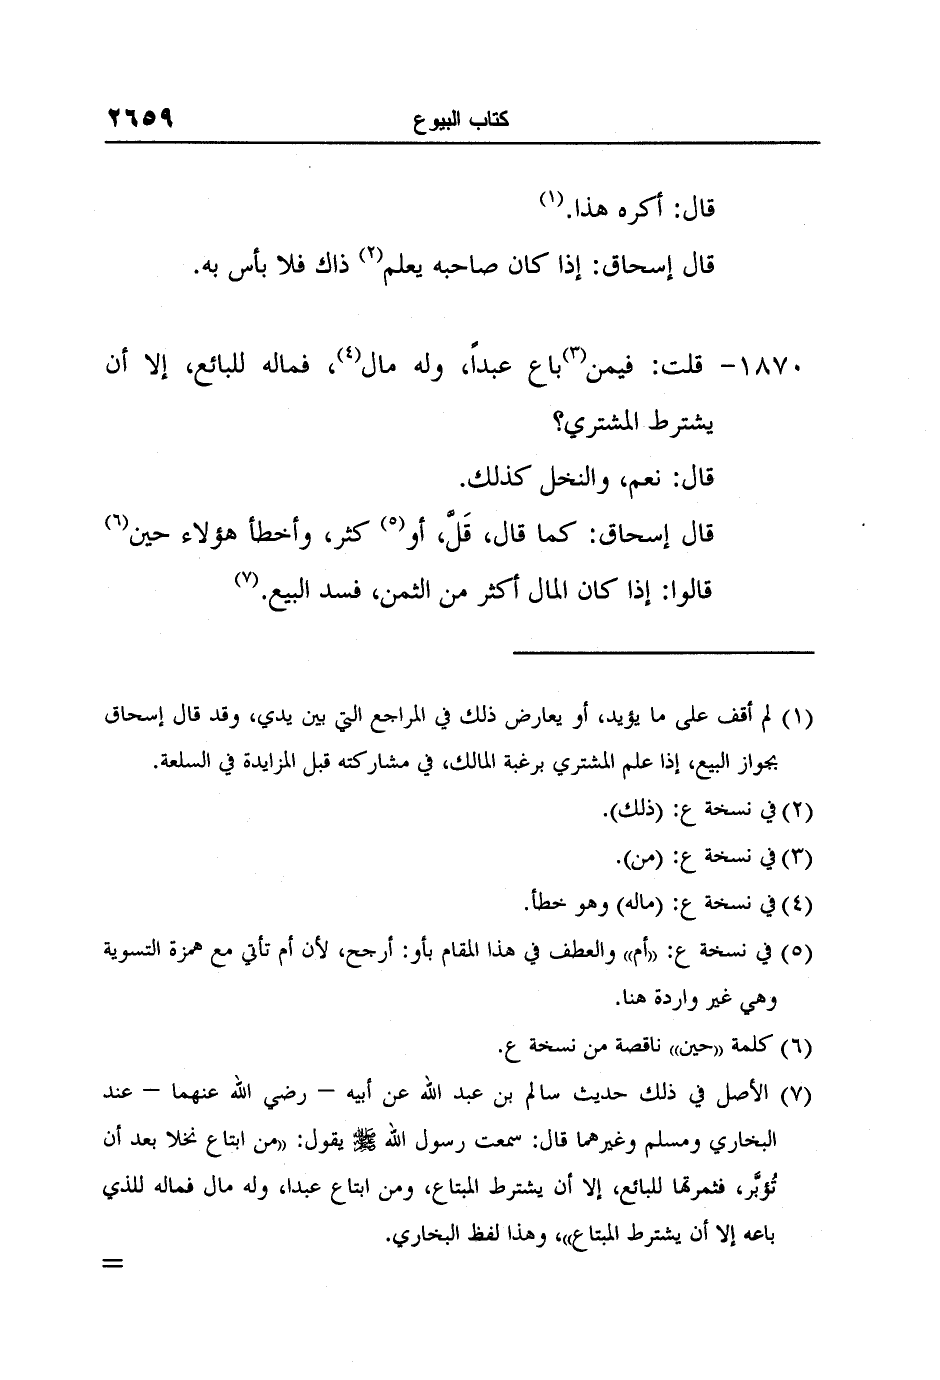 كتاب البيوع ٢٦٥٩
قال: أكره هذا.(١)
قال إسحاق: إذا كان صاحبه يعلم(٢) ذاك فلا بأس به.
١٨٧٠- قلت: فيمن(٣)باع عبداً، وله مال(٤)، فماله للبائع، إلا أن
يشترط المشتري؟
قال: نعم، والنخل كذلك.
قال إسحاق: كما قال، قَلَّ، أو(٥) كثر، وأخطأ هؤلاء حين(٦)
قالوا: إذا كان المال أكثر من الثمن، فسد البيع.(٧)
(١) لم أقف على ما يؤيد، أو يعارض ذلك في المراجع التي بين يدي، وقد قال إسحاق
بجواز البيع، إذا علم المشتري برغبة المالك، في مشاركته قبل المزايدة في السلعة.
(٢) في نسخة ع: (ذلك).
(٣) في نسخة ع: (من).
(٤) في نسخة ع: (ماله) وهو خطأ.
(٥) في نسخة ع: «أم» والعطف في هذا المقام بأو: أرجح، لأن أم تأتي مع همزة التسوية
وهي غير واردة هنا.
(٦) كلمة «حين» ناقصة من نسخة ع.
(٧) الأصل في ذلك حديث سالم بن عبد الله عن أبيه – رضي الله عنهما – عند
البخاري ومسلم وغيرهما قال: سمعت رسول الله ﷺ يقول: «من ابتاع نخلا بعد أن
تُؤبَّر، فثمرتها للبائع، إلا أن يشترط المبتاع، ومن ابتاع عبدا، وله مال فماله للذي
باعه إلا أن يشترط المبتاع»، وهذا لفظ البخاري.
=